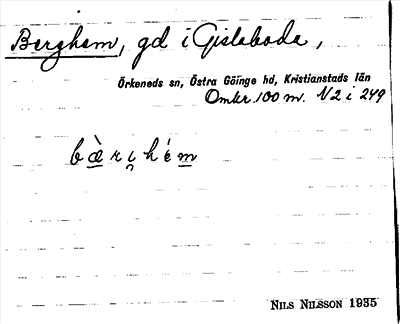 Berghem, gd i Gisleboda,
Örkeneds sn, Östra Göinge hd, Kristianstads län
Omkr. 100 m. N2 i 249
bæ̀ri̯hém
NILS NILSSON 1935